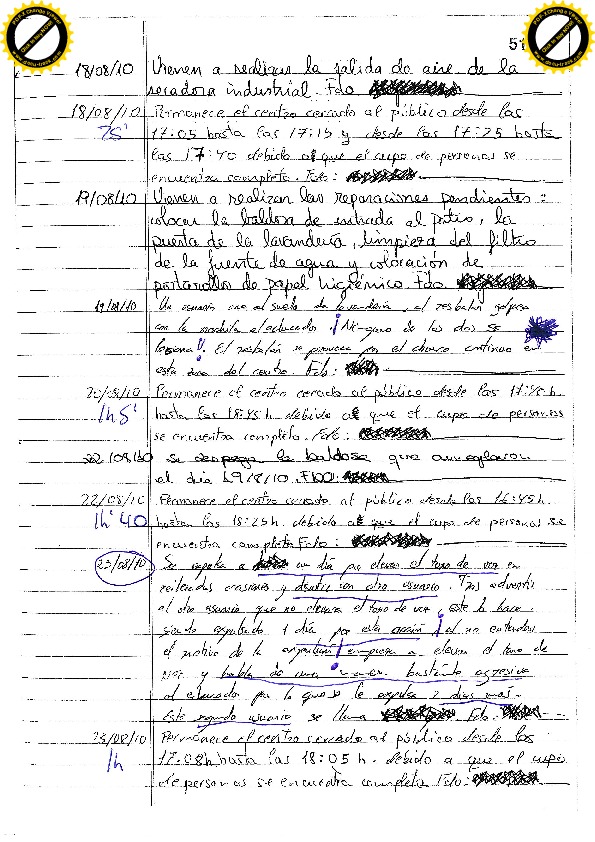 51
18/08/10 Vienen a realizar la salida de aire de la
secadora industrial. Fdo
18/08/10 Permanece el centro cerrado al público desde las
75' 17:05 hasta las 17:15 y desde las 17:25 hasta
las 17:40 debido al que el cupo de personas se
encuentra completo. Fdo:
19/08/10 Vienen a realizar las reparaciones pendientes:
colocar la baldosa de entrada al patio, la
puerta de la lavandería, limpieza del filtro
de la fuente de agua y colocación de
portarollos de papel higiénico. Fdo
19/08/10 Un usuario cae al suelo de lavandería, al resbalar golpea
con la al educador. ¡Ninguno de los dos se
lesiona!! El resbalón se provoca por el charco continuo en
esta zona del centro. Fdo:
20/08/10 Permanece el centro cerrado al público desde las 17:40h
1h 5' hasta las 18:45h debido al que el cupo de personas
se encuentra completo. Fdo:
22/08/10 se despega la baldosa que arreglaron
el día 19/8/10. FDO:
22/08/10 Permanece el centro cerrado al público desde las 16:45h
1h 40 hasta las 18:25h. debido al que el cupo de personas se
encuentra completo Fdo:
23/08/10 Se expulsa a un día por elevar el tono de voz en
reiteradas ocasiones y discutir con otro usuario. Tras advertir
al otro usuario que no elevara el tono de voz, este h hace
siendo expulsado 1 día por esta acción, al no entender
el motivo de la expulsión empieza a elevar el tono de
voz y habla de una manera bastante agresiva
al educador por lo que se le expulsa 2 días mas.
Este segundo usuario se llama Fdo.
23/08/10 Permanece el centro cerrado al público desde las
1h 17:08h hasta las 18:05 h. debido a que el cupo
de personas se encuentra completo Fdo.